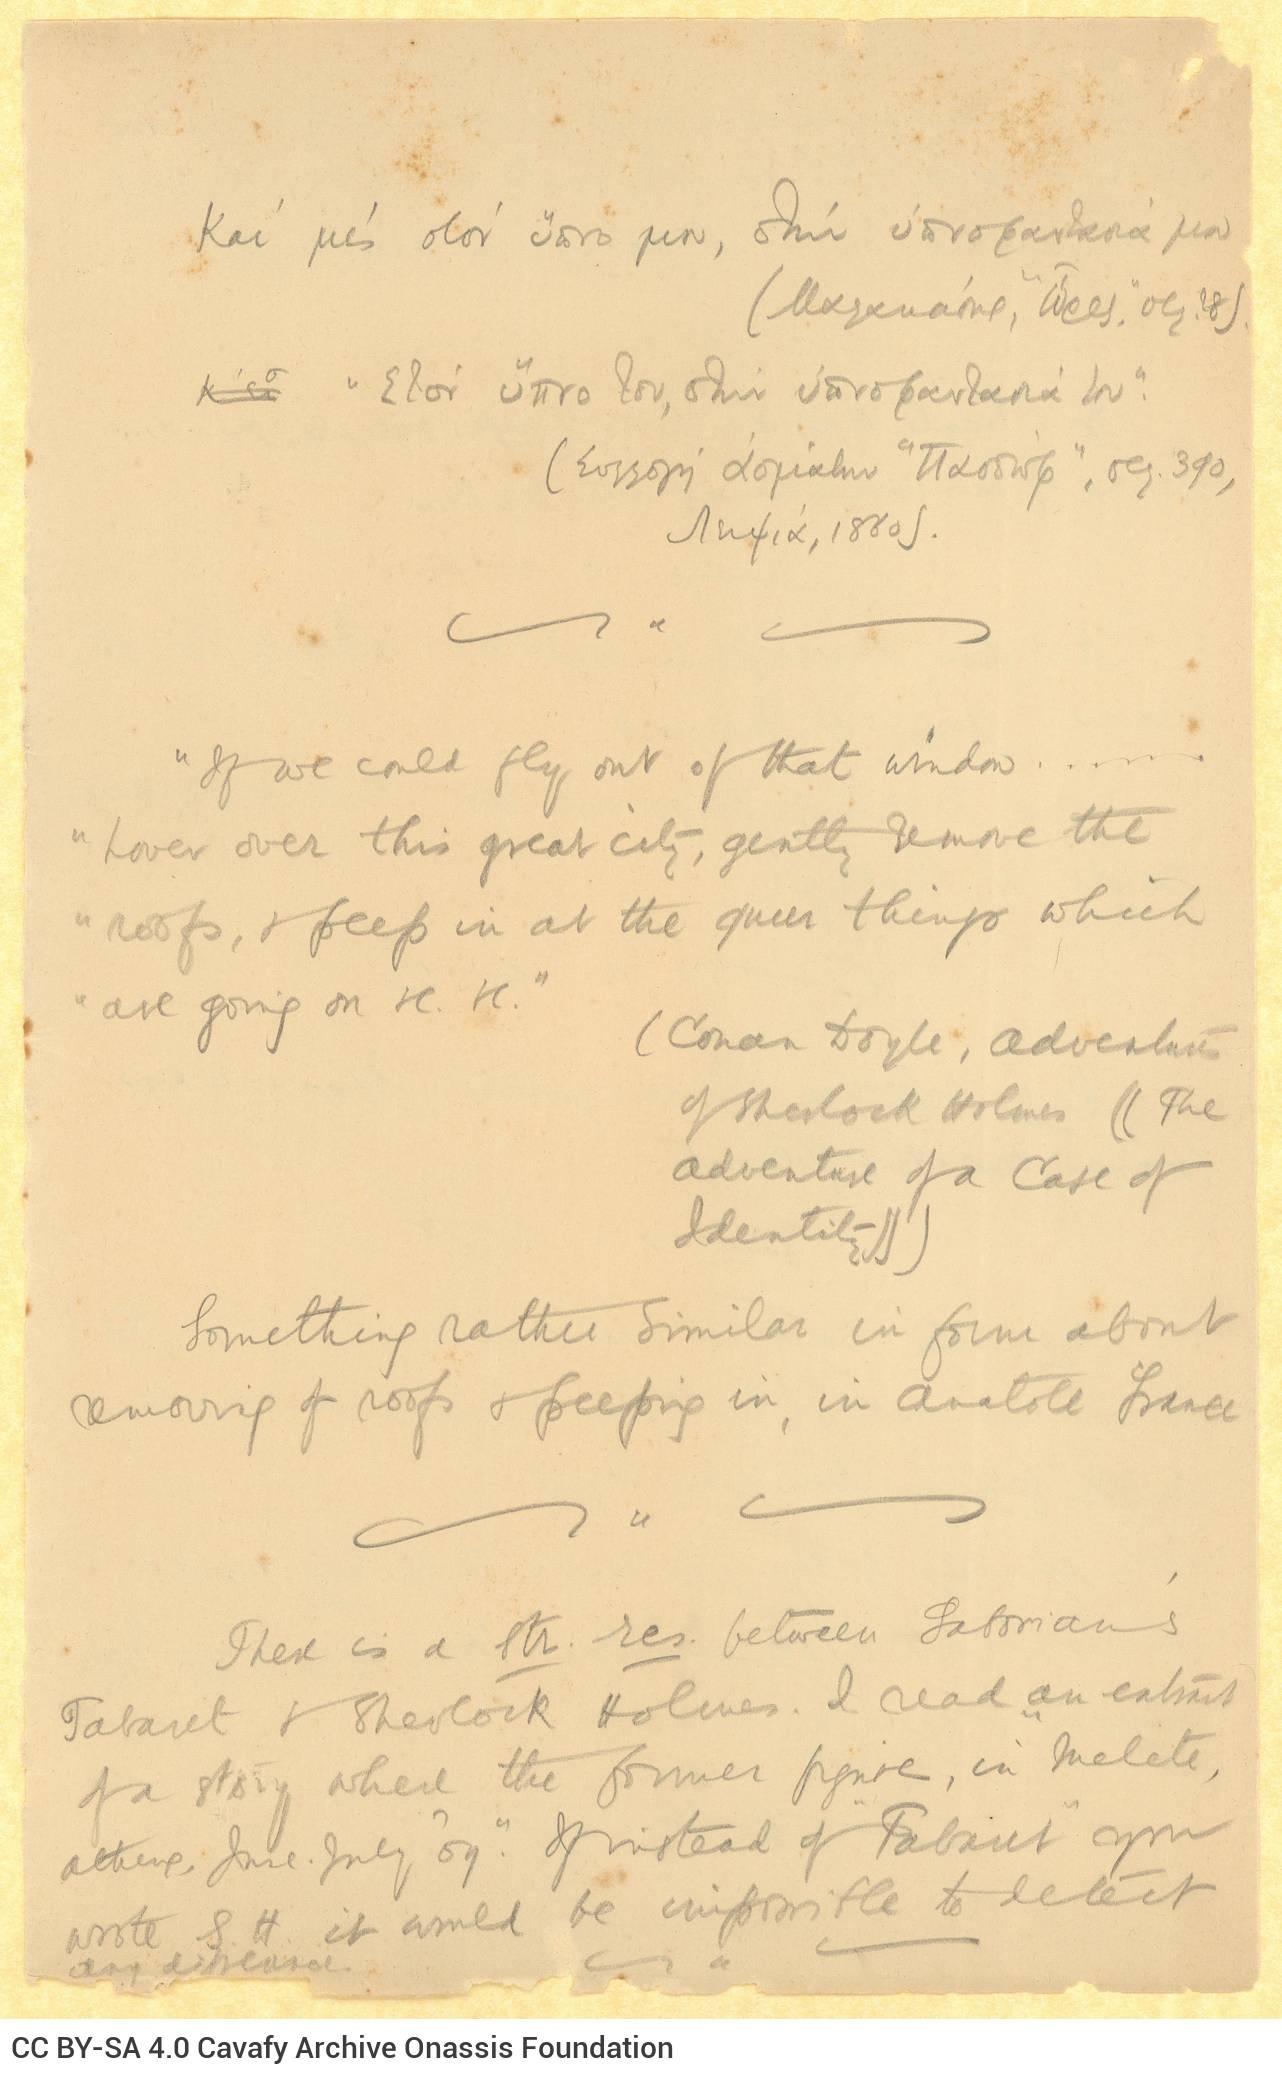 Καὶ μὲς στὸν ὕπνο μου, στὴν ὑπνοφαντασιά μου
(Μαλακάσης, "Ὧρες," σελ. 28).
"Στὸν ὕπνο του, στὴν ὑπνοφαντασιά του".
(Συλλογή ᾀσμάτων "Πασσὼβ", σελ. 390,
Λειψιά, 1860).
"
"If we could fly out of that window .......
"hover over this great city, gently remove the
"roofs, & peep in at the queer things which
"are going on &c. &c."
(Conan Doyle, Adventures
of Sherlock Holmes ((The
adventure of a Case of
Identity)))
Something rather similar in form about
removing of roofs & peeping in, in Anatole France
"
There is a str. res. between Gaboriau's
Tabaret & Sherlock Holmes. I read an extract
of a story where the former figure, in "Melete,
Athens, June-July '09". If instead of "Tabaret" you
wrote S. H. it would be impossible to detect
any difference.
"
CC BY-SA 4.0 Cavafy Archive Onassis Foundation